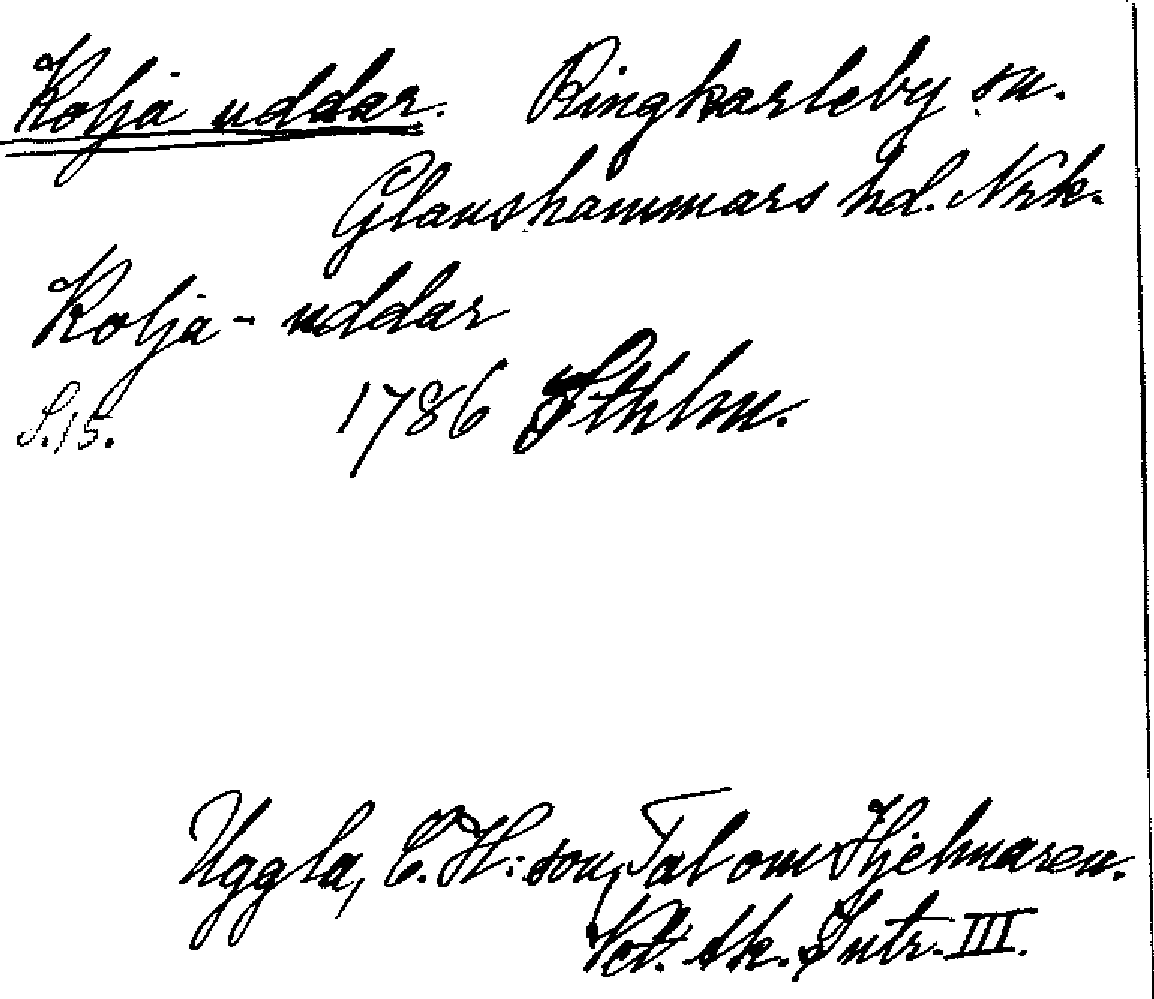 Kolja uddar. Ringkarleby sn.
Glanshammars hd. Nrk.
Kolja - uddar
S. 15. 1786 Sthlm.
Uggla, C. H:son, Tal om Hjelmaren.
Vet. Ak. Intr. III.